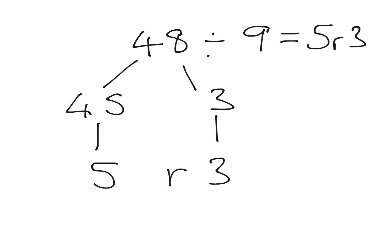 48 ÷ 9 = 5r3
45 3
5 r 3